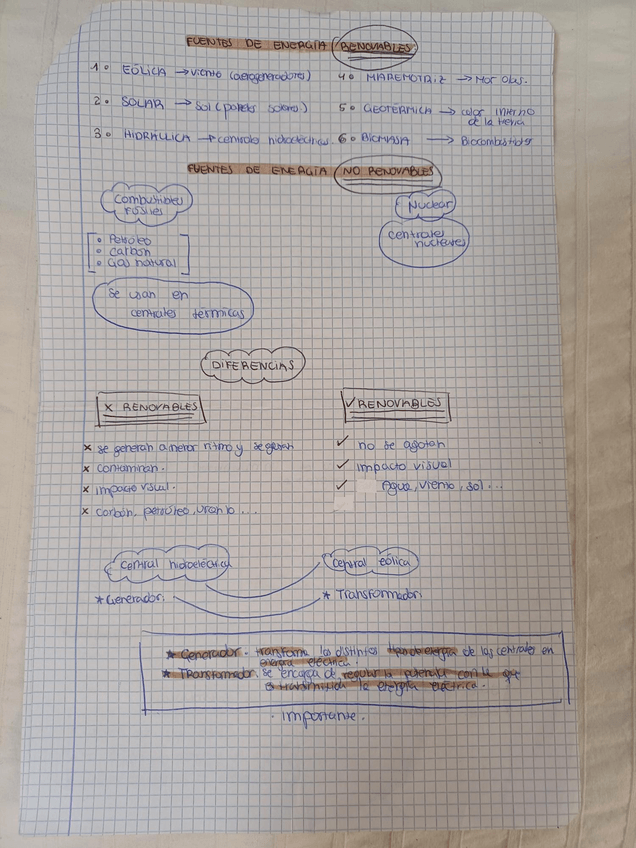 FUENTES DE ENERGÍA RENOVABLES
1º EÓLICA → viento (aerogeneradores)
2º SOLAR → sol (paneles solares)
3º HIDRÁULICA → centrales hidroeléctricas.
4º MAREMOTRIZ → Mar Olas.
5º GEOTÉRMICA → calor interno de la tierra
6º BIOMASA → Biocombustibles
FUENTES DE ENERGÍA NO RENOVABLES
Combustibles
FÓSILES
• Petróleo
• Carbón
• Gas natural
Se usan en
centrales térmicas
Nuclear
centrales
nucleares
DIFERENCIAS
X RENOVABLES
x se generan a menor ritmo y se gastan
x contaminan.
x impacto visual.
x carbón, petróleo, uranio ...
✓ RENOVABLES
✓ no se agotan
✓ impacto visual
✓ Agua, viento, sol ...
Central hidroeléctrica
Central eólica
* Generador.
* Transformador.
* Generador. transforma los distintos tipos de energía de las centrales en
energía eléctrica.
* Transformador. se encarga de regular la potencia con la que
es transmitida la energía eléctrica.
· importante.